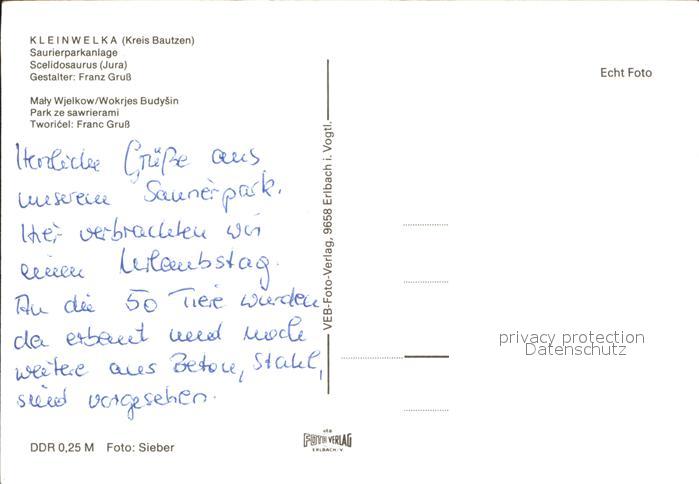 KLEINWELKA (Kreis Bautzen)
Saurierparkanlage
Scelidosaurus (Jura)
Gestalter: Franz Gruß
Mały Wjelkow/Wokrjes Budyšin
Park ze sawrierami
Tworićel: Franc Gruß
Herzliche Grüße aus
unserem Saurierpark.
Hier verbrachten wir
einen Urlaubstag.
An die 50 Tiere wurden
da erbaut und noch
weitere aus Beton, Stahl,
sind vorgesehen.
DDR 0,25 M Foto: Sieber
VEB-Foto-Verlag, 9658 Erlbach i. Vogtl.
Echt Foto
privacy protection
Datenschutz
FOTO VERLAG
ERLBACH·V.